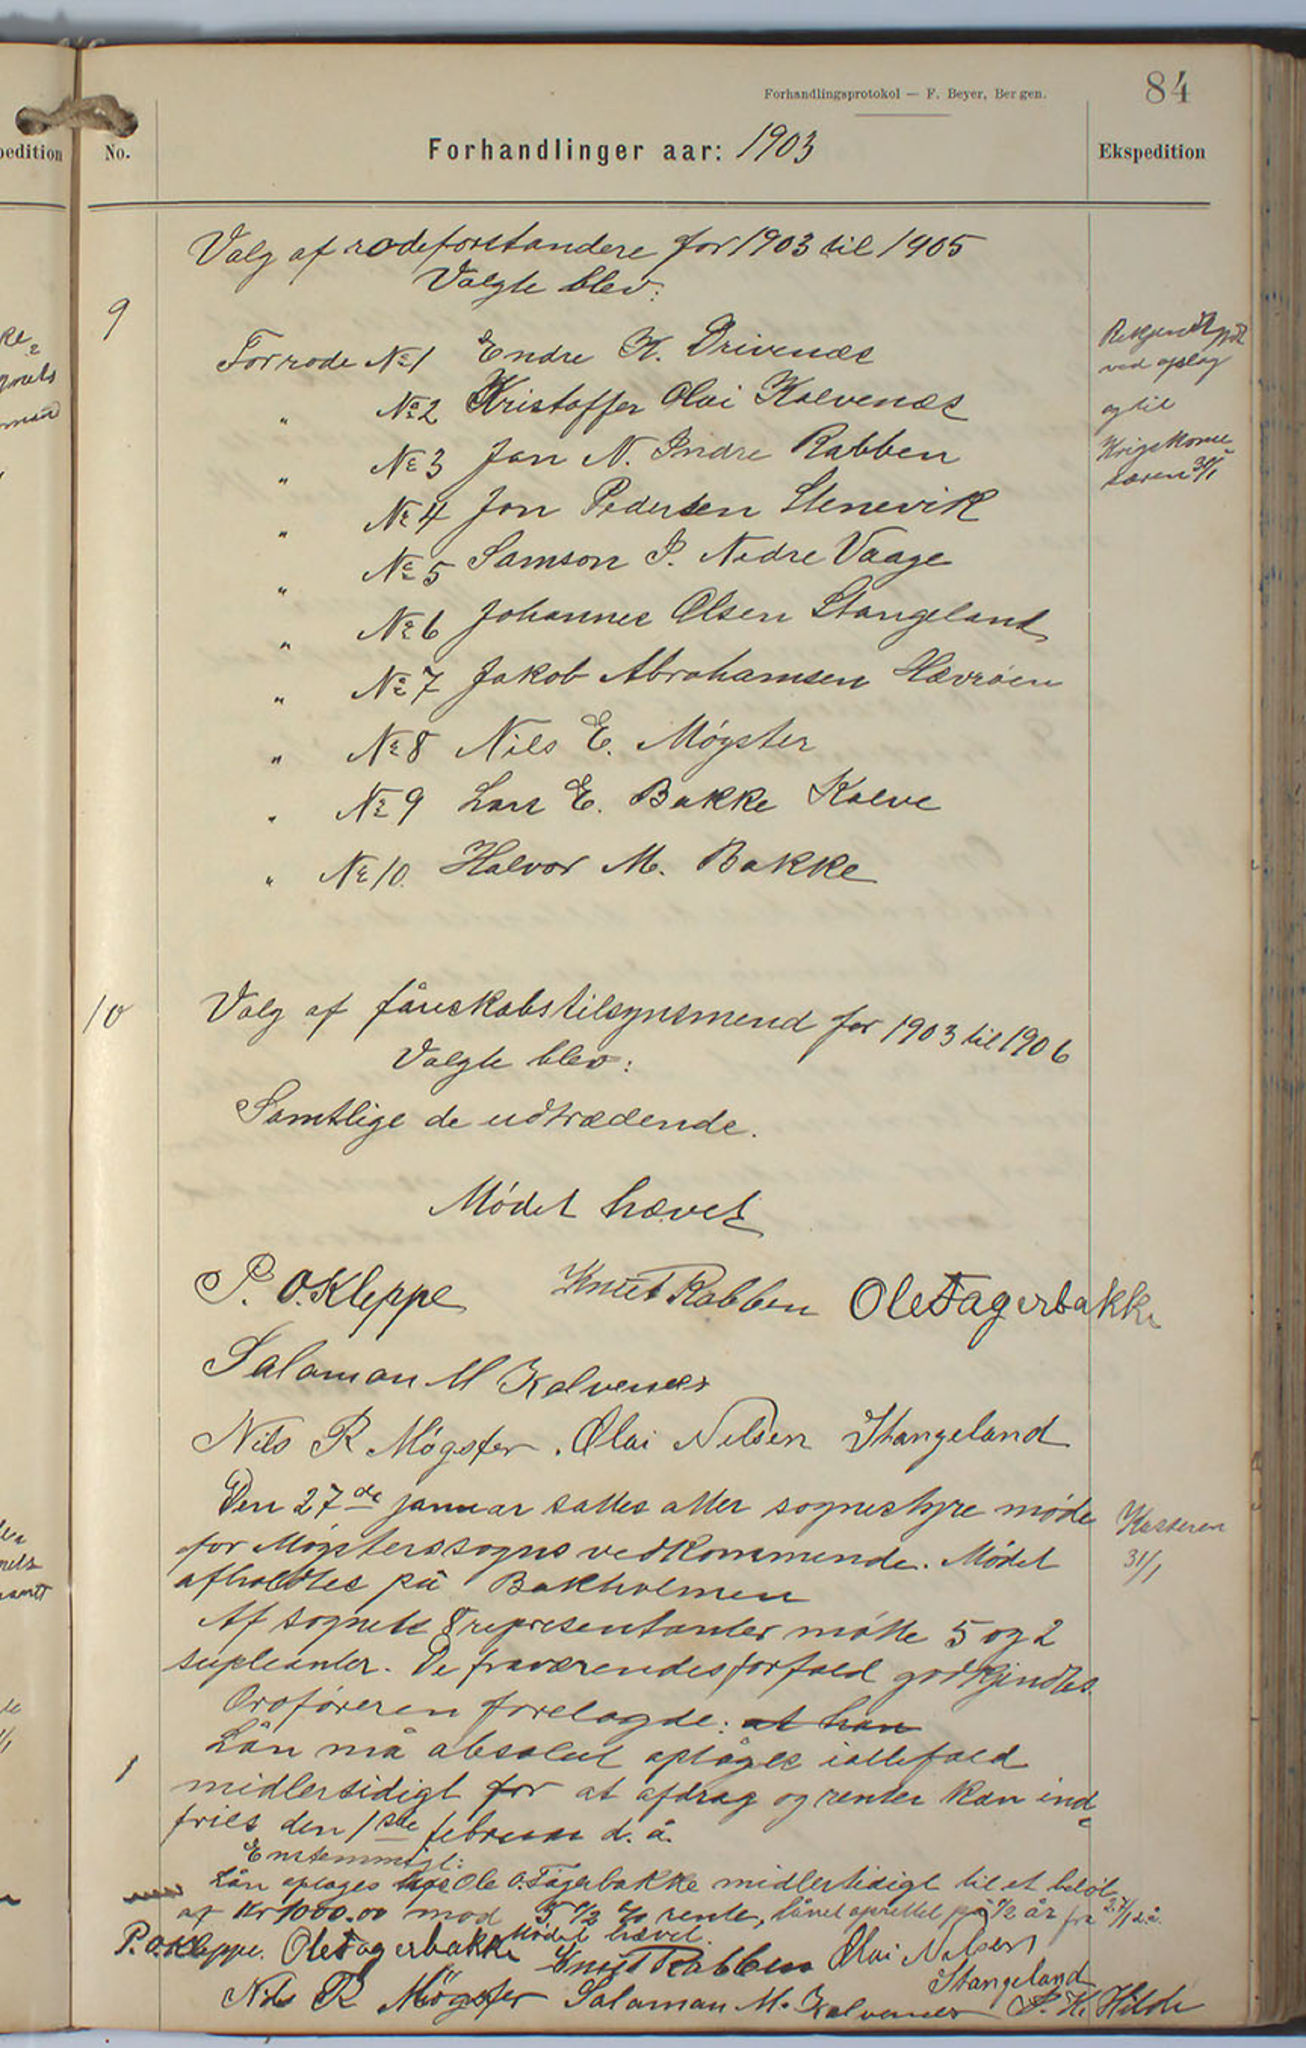 Forhandlingsprotokol — F. Beyer, Bergen.
84
No.
Forhandlinger aar: 1903
Ekspedition
Valg af rodeforstandere for 1903 til 1905
Valgte blev:
9
For rode No 1 Endre K. Drivenæs
" No 2 Kristoffer Olai Kalvenæs
" No 3 Jan N. Indre Rabben
" No 4 Jon Pedersen Stenevik
" No 5 Samson P. Nedre Vaage
" No 6 Johannes Olsen Stangeland
" No 7 Jakob Abrahamsen Hævrøen
" No 8 Nils E. Møgster
" No 9 Lars E. Bakke Kalve
" No 10. Halvor M. Bakke
ved opslag
og til
10
Valg af fåreskabstilsynsmend for 1903 til 1906
Valgte blev:
Samtlige de udtrædende.
Mødet hævet
P. O. Kleppe Knut Rabben Ole Fagerbakke
Salamon M Kalvenes
Nils R Møgster. Olai Nilsen Stangeland
Den 27de januar sattes atter sognestyre møde
for Møgsters sogns vedkommende. Mødet
afholdtes på Bakholmen
Kasseren
31/1
Af sognets 8 representanter møtte 5 og 2
supleanter. De fraværendes forfald godkjendtes.
Ordføreren forelagde: at han
1
Lån må absolut optages iallefald
midlertidigt for at afdrag og renter kan ind-
fries den 1ste februar d. å.
Enstemmigt:
Lån optages hos Ole O. Fagerbakke midlertidigt til et beløb
af Kr 1000.00 mod 5 1/2 % rente, lånet oprettet på 1/2 år fra 27/1 d.å.
Mødet hævet.
P. O. Kleppe. Ole Fagerbakke Knut Rabben Olai Nilsen
Stangeland
Nils R Møgster Salaman M. Kalvenes P. K. Hilde